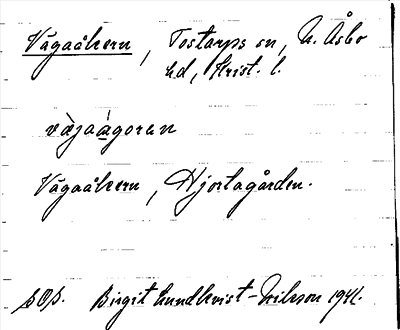 Vågaåkern, Tostarps sn, N. Åsbo
hd, Krist. l.
vàjaágoren
Vågaåkern, Hjortagården.
Birgit Lundkvist-Nilsson 1941.